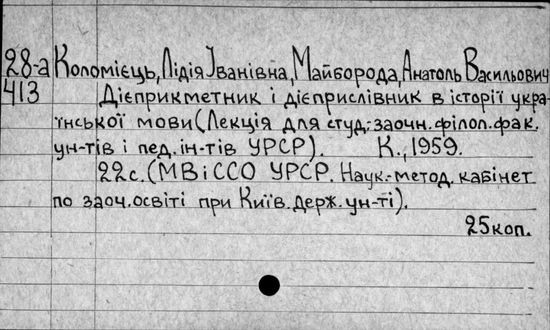 28-а Коломієць, Лідія Іванівна, Майборода, Анатоль Васильович
413 Дієприкметник і дієприслівник в історії укра-
їнської мови (Лекція для студ.-заочн. філол. фак.
ун-тів і пед. ін-тів УРСР). К., 1959.
22с. (МВіССО УРСР. Наук.-метод. кабінет
по заоч. освіті при Київ. держ. ун-ті).
25коп.